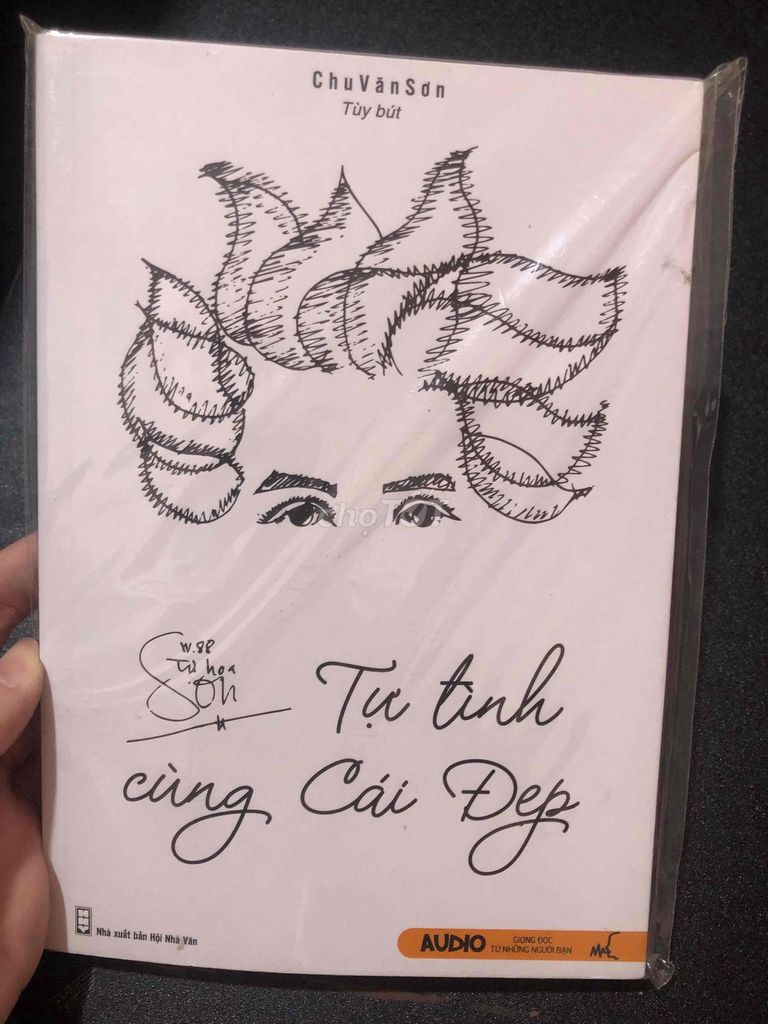 Chu Văn Sơn
Tùy bút
Chợ Tốt
W.88
Tự họa
Sơn
Tự tình
cùng Cái Đẹp
Nhà xuất bản Hội Nhà Văn
AUDIO
GIỌNG ĐỌC
TỪ NHỮNG NGƯỜI BẠN